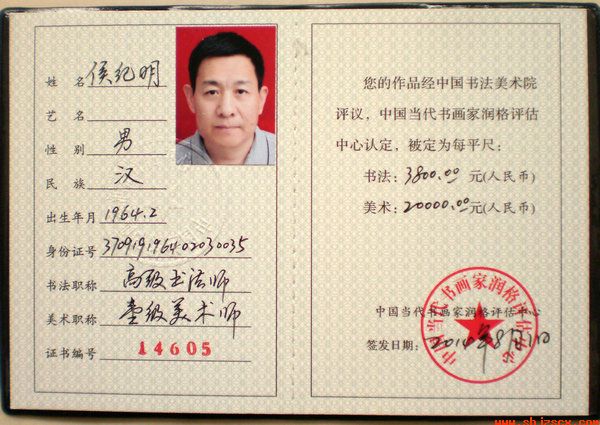 姓 名 侯纪明
艺 名
性 别 男
民 族 汉
出生年月 1964.2
身份证号 370919196402030035
书法职称 高级书法师
美术职称 壹级美术师
证书编号 14605
您的作品经中国书法美术院
评议，中国当代书画家润格评估
中心认定，被定为每平尺：
书法：3800.00 元(人民币)
美术：20000.00 元(人民币)
中国当代书画家润格评估中心
中国当代书画家润格评估中心
签发日期：2014年8月1日
www.shjzscx.com